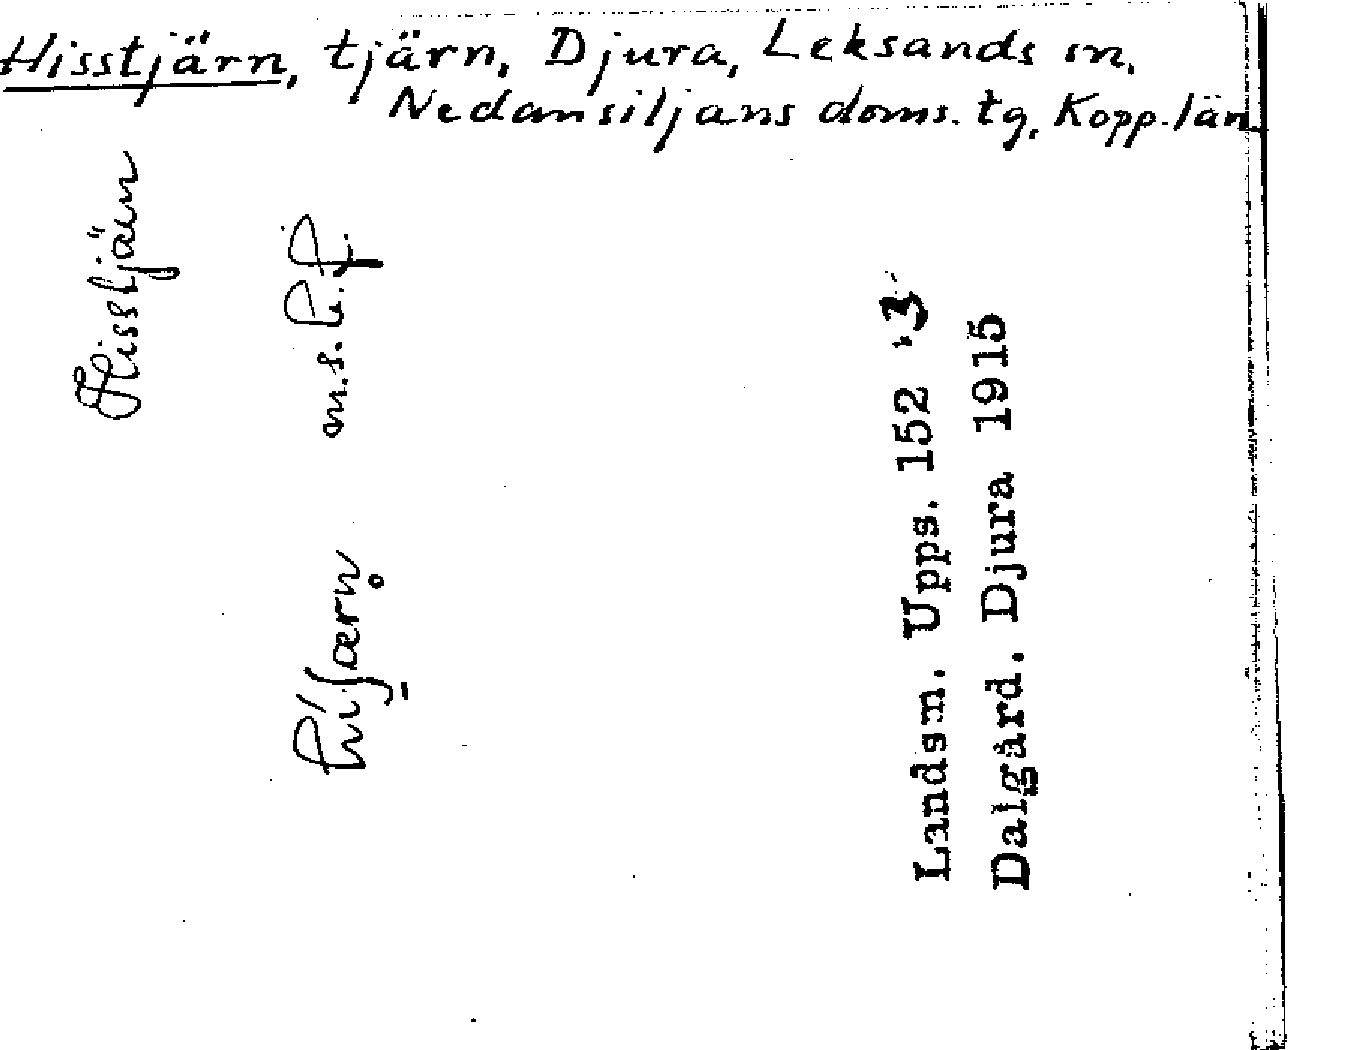 Hisstjärn, tjärn, Djura, Leksands sn.
Nedansiljans doms. tg, Kopp. län
Hisstjärn
m.s.
Landsm. Upps. 152
Dalgård. Djura 1915